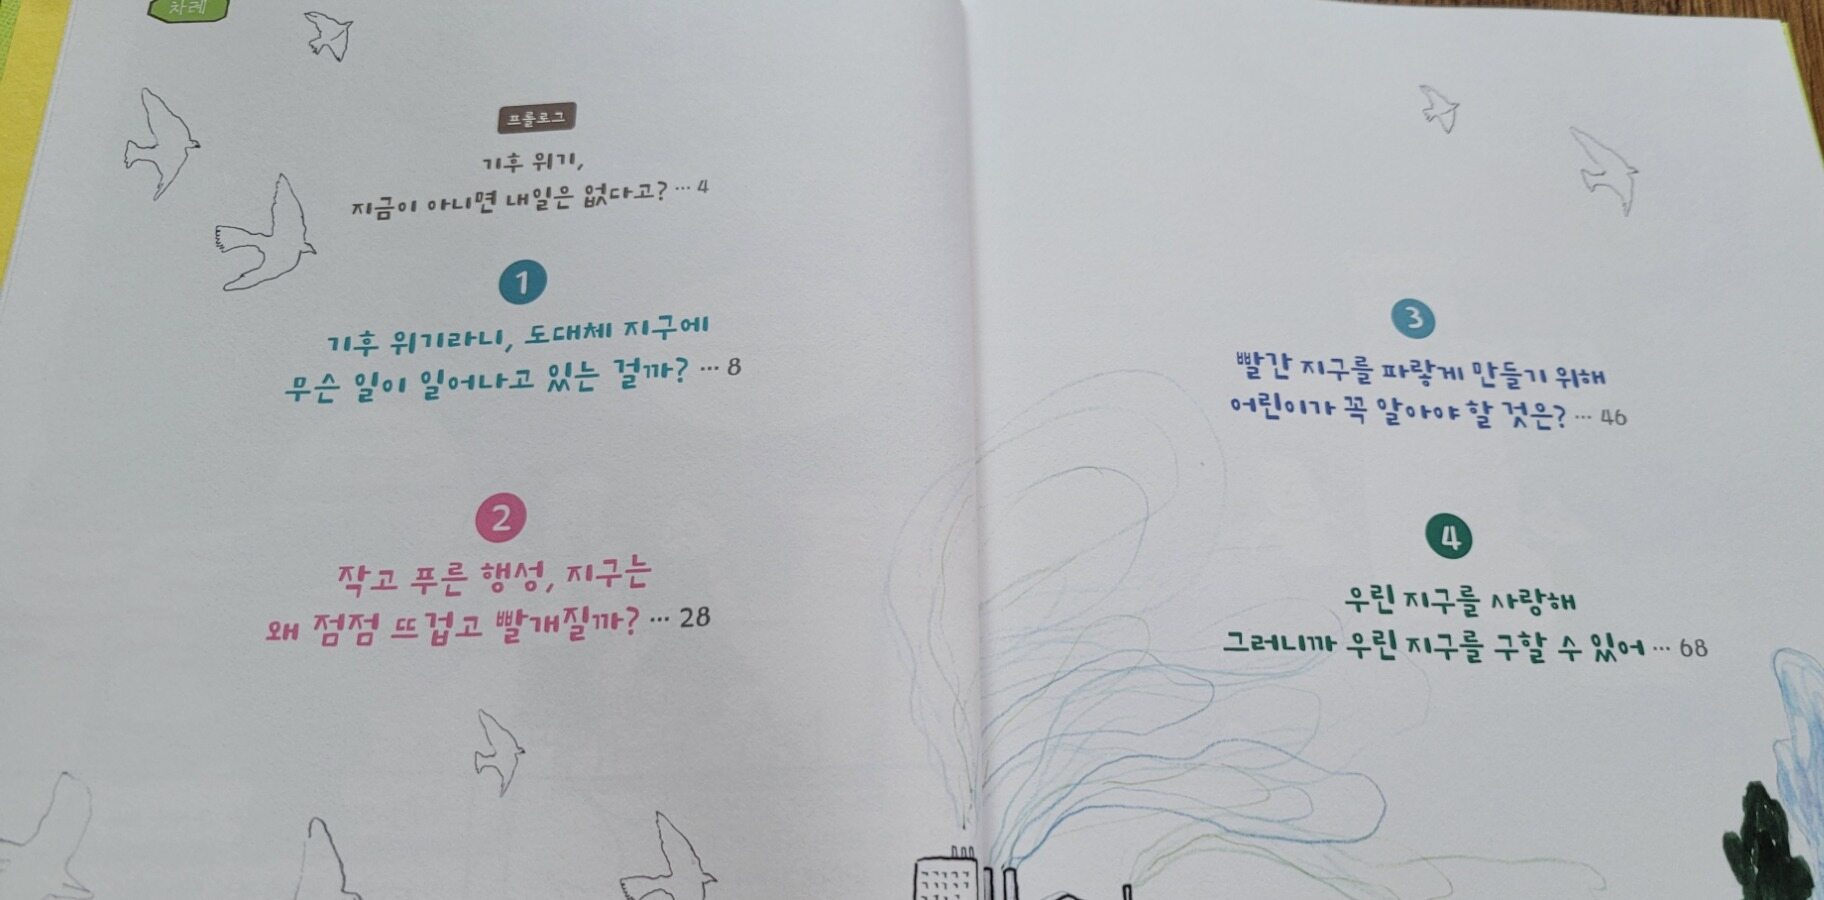 차례
프롤로그
기후 위기,
지금이 아니면 내일은 없다고? ··· 4
1
기후 위기라니, 도대체 지구에
무슨 일이 일어나고 있는 걸까? ··· 8
2
작고 푸른 행성, 지구는
왜 점점 뜨겁고 빨개질까? ··· 28
3
빨간 지구를 파랗게 만들기 위해
어린이가 꼭 알아야 할 것은? ··· 46
4
우린 지구를 사랑해
그러니까 우린 지구를 구할 수 있어 ··· 68